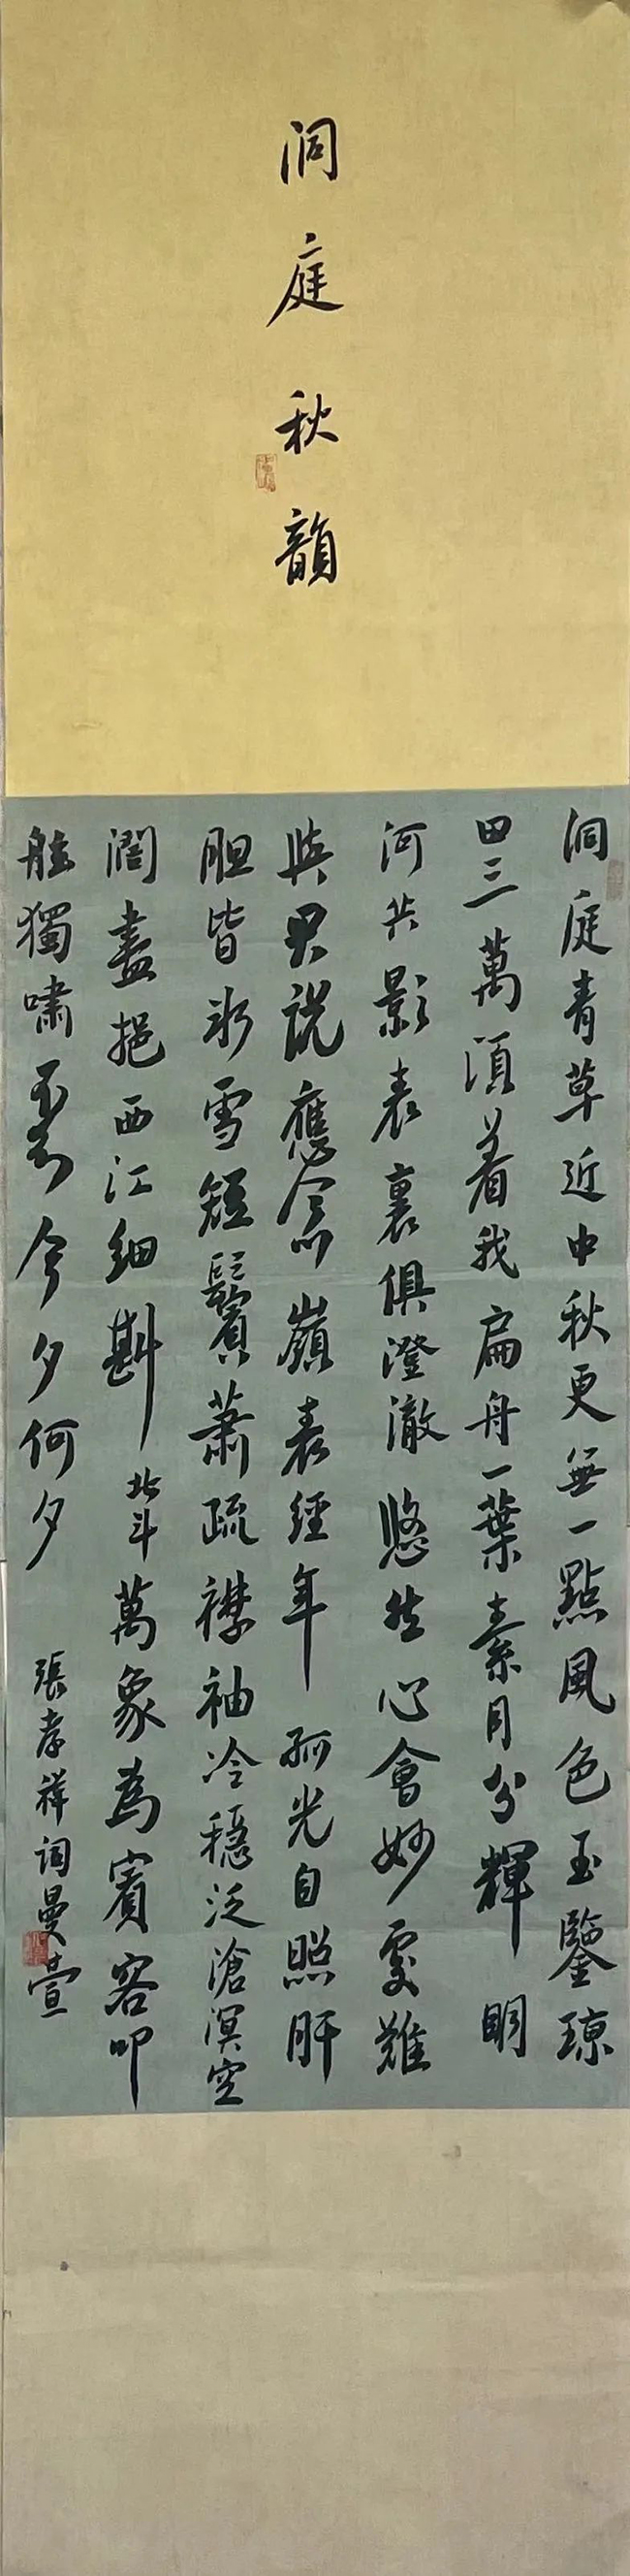 洞庭秋韻
洞庭青草近中秋更無一點風色玉鑒琼
田三萬頃着我扁舟一葉素月分輝明
河共影表裏俱澄澈悠然心會妙處難
與君說應念嶺表經年孤光自照肝
胆皆冰雪短鬢蕭疏襟袖冷穩泛滄溟空
闊盡挹西江細斟北斗萬象為賓客叩
舷獨嘯不知今夕何夕
張孝祥詞曼萱